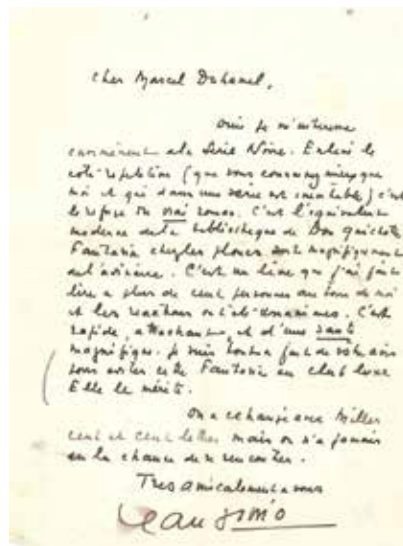 cher Marcel Duhamel,
Oui je m'intéresse
énormément a la Série Noire. Enlevé le
coté répétition (que vous connaissez mieux que
moi et qui dans une série est inévitable) c'est
le refuge du vrai roman. C'est l'équivalent
moderne de la bibliothèque de Don Quichotte
Fantasia chez les ploucs est magnifiquement
. C'est un livre que j'ai fait
lire a plus de cent personnes autour de moi
et les reactions ont été unanimes. C'est
rapide, attachant, et d'une santé
magnifique. Je suis tout a fait de votre avis
pour cette Fantasia au club
Elle le mérite.
On a échangé avec Miller
cent et cent lettres mais on n'a jamais
eu la chance de se rencontrer.
Tres amicalement a vous
Jean Giono